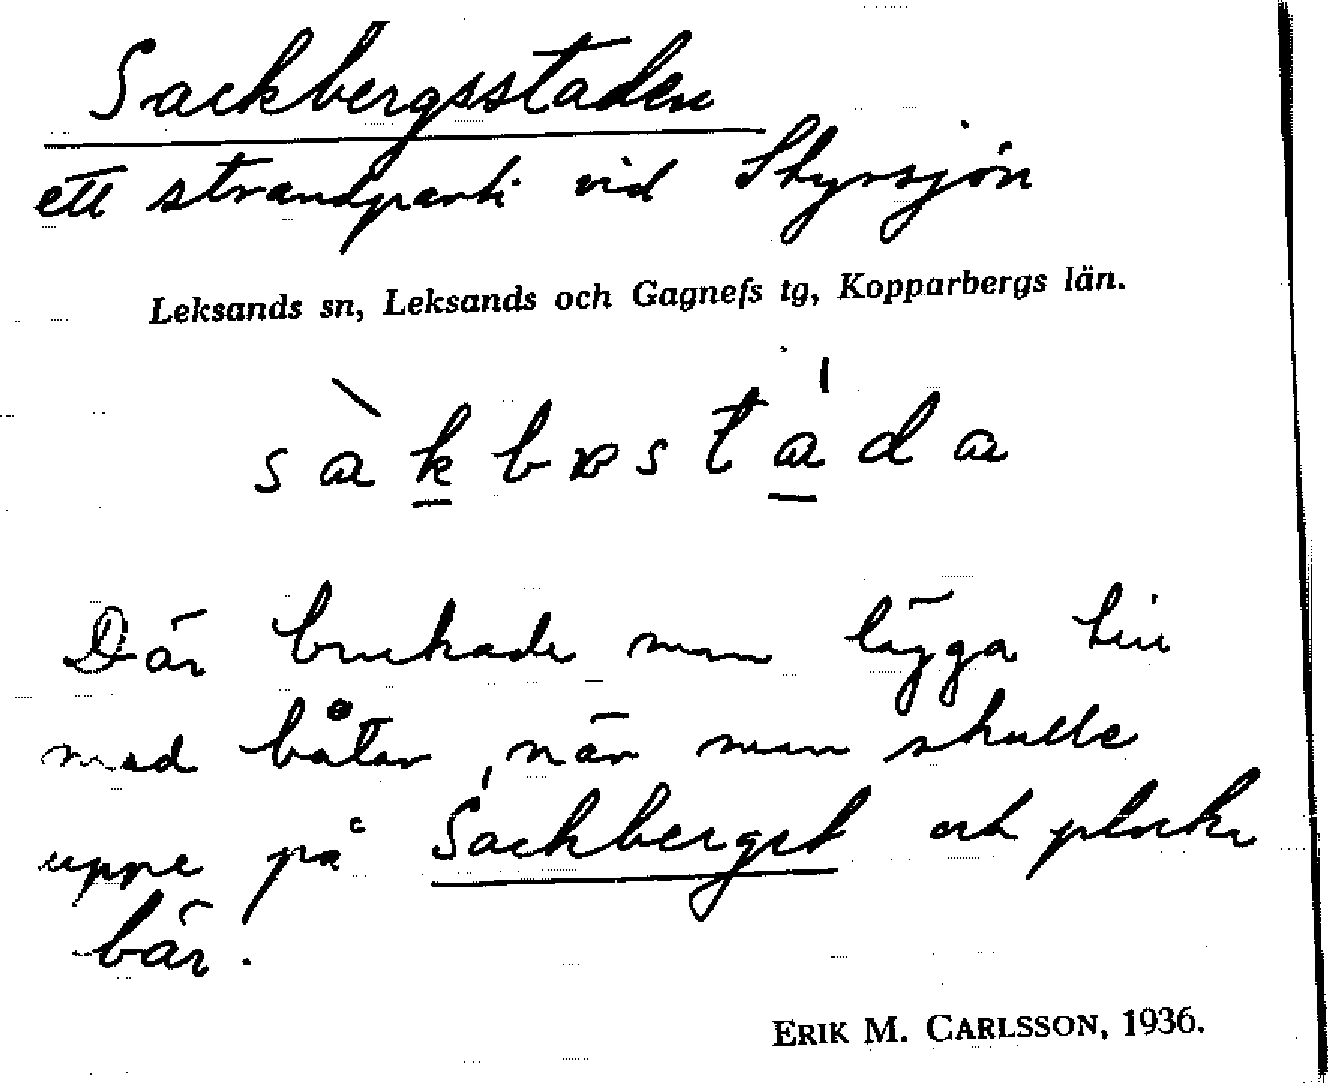 Sackbergsstaden
ett strandparti vid Styrsjön
Leksands sn, Leksands och Gagnefs tg, Kopparbergs län.
sàkbɒstáda
Där brukade man lägga till
med båtar, när man skulle
uppe på Sackberget och plocka
bär.
ERIK M. CARLSSON, 1936.